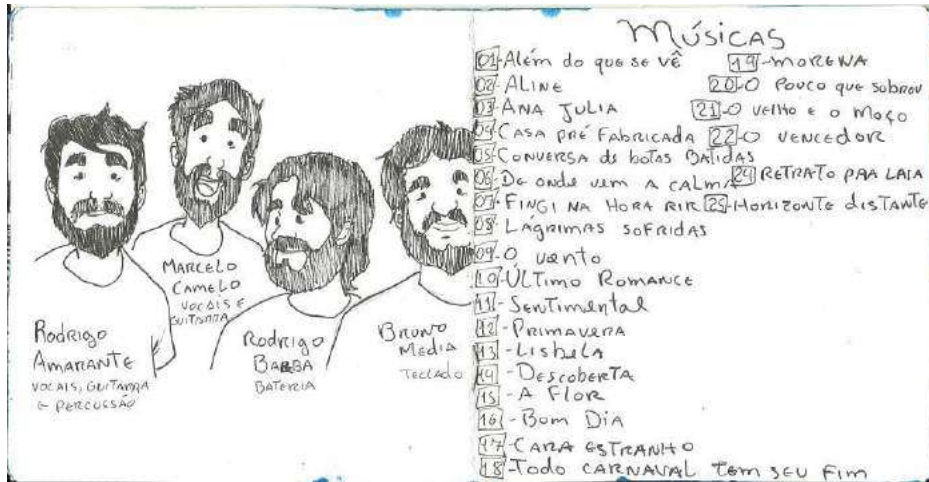 Rodrigo
Amarante
vocais, guitarra
e percussão
Marcelo
Camelo
vocais e
guitarra
Rodrigo
Barba
Bateria
Bruno
Media
Teclado
Músicas
01-Além do que se vê
02-Aline
03-Ana Julia
04-Casa pré Fabricada
05-Conversa ds botas Batidas
06-De onde vem a calma
07-Fingi na hora rir
08-Lágrimas sofridas
09-O vento
10-Último Romance
11-Sentimental
12-Primavera
13-Lisbela
14-Descoberta
15-A Flor
16-Bom Dia
17-Cara estranho
18-Todo carnaval tem seu fim
19-morena
20-O Pouco que sobrou
21-O velho e o Moço
22-O vencedor
24 Retrato pra Laia
25-Horizonte distante